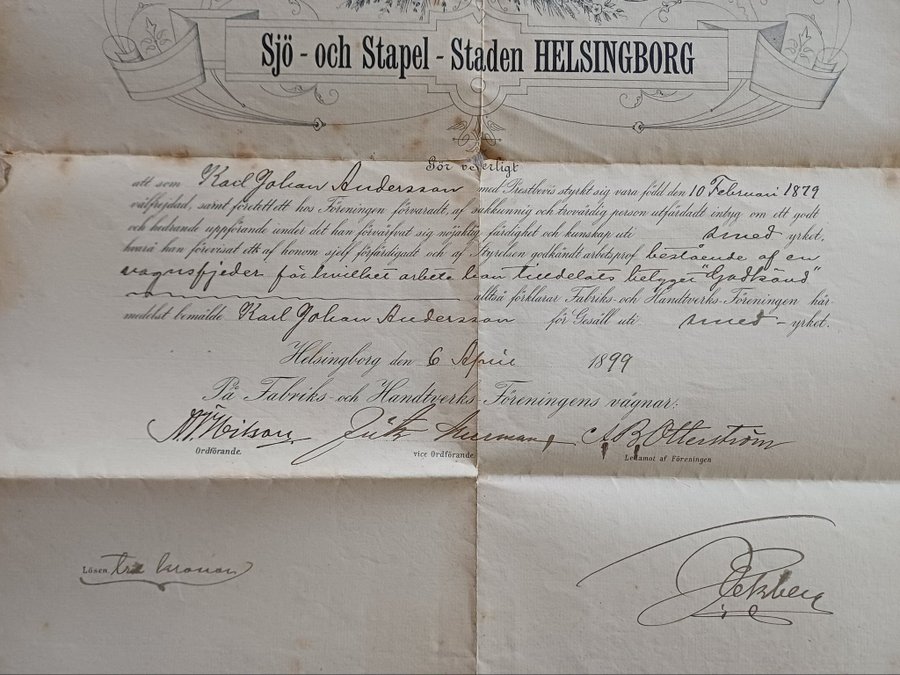 Sjö - och Stapel - Staden HELSINGBORG
Gör veterligt
att som Karl Johan Andersson med Prestbevis styrkt sig vara född den 10 Februari 1879
välfrejdad, samt företett ett hos Föreningen förvaradt, af sakkunnig och trovärdig person utfärdadt intyg om ett godt
och hedrande uppförande under det han förvärfvat sig nöjaktig färdighet och kunskap uti smed yrket,
hvarå han förevisat ett af honom sjelf förfärdigadt och af Styrelsen godkändt arbetsprof bestående af en
vagnsfjeder för hvilket arbete han tilldelats betyget "Godkänd"
alltså förklarar Fabriks- och Handtverks-Föreningen här-
medelst bemälde Karl Johan Andersson för Gesäll uti smed - yrket.
Helsingborg den 6 April 1899
På Fabriks- och Handtverks-Föreningens vägnar:
Fritz C A B Otterström
Ordförande. vice Ordförande Ledamot af Föreningen
Lösen. tre kronor
Ekberg